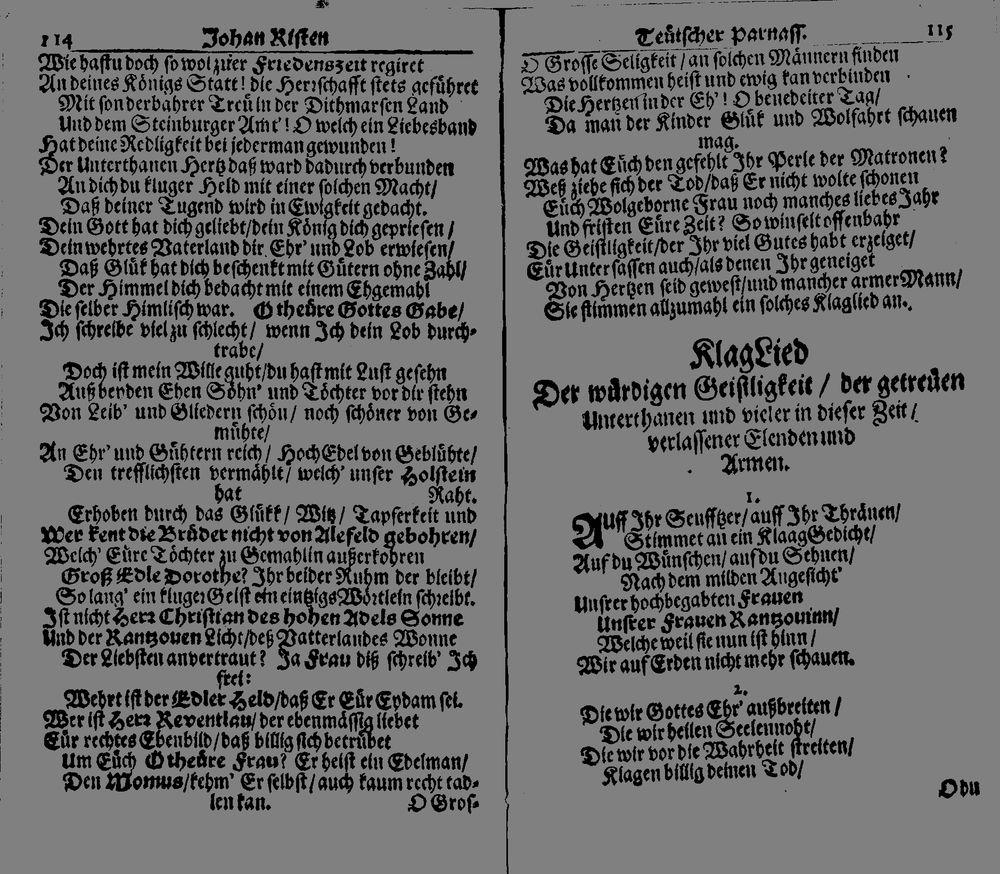 114 Johan Risten
Wie hastu doch so wol zurer Friedenszeit regiret
An deines Königs Statt! die Herrschafft stets geführet
Mit sonderbahrer Treü in der Dithmarsen Land
Und dem Steinburger Amt'! O welch ein Liebesband
Hat deine Redligkeit bei jederman gewunden!
Der Unterthanen Hertz daß ward dadurch verbunden
An dich du kluger Held mit einer solchen Macht/
Daß deiner Tugend wird in Ewigkeit gedacht.
Dein Gott hat dich geliebt/dein König dich gepriesen/
Dein wehrtes Vaterland dir Ehr' und Lob erwiesen/
Daß Glük hat dich beschenkt mit Gütern ohne Zahl/
Der Himmel dich bedacht mit einem Ehgemahl
Die selber Himlisch war. O theüre Gottes Gabe/
Ich schreibe viel zu schlecht/ wenn Ich dein Lob durch-
trabe/
Doch ist mein Wille guht/du hast mit Lust gesehn
Auß beyden Ehen Söhn' und Töchter vor dir stehn
Von Leib' und Gliedern schön/ noch schöner von Ge-
mühte/
An Ehr' und Gühtern reich/ HochEdel von Geblühte/
Den trefflichsten vermählt/ welch' unser Holstein
hat Raht.
Erhoben durch das Glükk/ Witz/ Tapferkeit und
Wer kent die Brüder nicht von Alefeld gebohren/
Welch' Eüre Töchter zu Gemahlin außerkohren
Groß Edle Dorothe? Ihr beider Ruhm der bleibt/
So lang' ein kluger Geist ein eintzigs Wörtlein schreibt.
Ist nicht Herr Christian des hohen Adels Sonne
Und der Rantzouen Licht/deß Vatterlandes Wonne
Der Liebsten anvertraut? Ja Frau diß schreib' Ich
frei:
Wehrt ist der Edler Held/daß Er Eür Eydam sei.
Wer ist Herr Reventlau/der ebenmässig liebet
Eür rechtes Ebenbild/daß billig sich betrübet
Um Eüch O theüre Frau? Er heist ein Edelman/
Den Momus/kehm' Er selbst/auch kaum recht tad-
len kan. O Gros-
Teütscher Parnass. 115
O Grosse Seligkeit/an solchen Männern finden
Was vollkommen heist und ewig kan verbinden
Die Hertzen in der Eh'! O benedeiter Tag/
Da man der Kinder Glük und Wolfahrt schauen
mag.
Was hat Eüch den gefehlt Ihr Perle der Matronen?
Weß ziehe sich der Tod/daß Er nicht wolte schonen
Eüch Wolgeborne Frau noch manches liebes Jahr
Und fristen Eüre Zeit? So winselt offenbahr
Die Geistligkeit/der Ihr viel Gutes habt erzeiget/
Eür Untersassen auch/als denen Ihr geneiget
Von Hertzen seid gewest/und mancher armer Mann/
Sie stimmen allzumahl ein solches Klaglied an.
KlagLied
Der würdigen Geistligkeit/ der getreüen
Unterthanen und vieler in dieser Zeit/
verlassener Elenden und
Armen.
1.
Auff Ihr Seufftzer/auff Ihr Thränen/
Stimmet an ein KlaagGedicht/
Auf du Wünschen/auf du Sehnen/
Nach dem milden Angesicht'
Unsrer hochbegabten Frauen
Unsrer Frauen Rantzouinn/
Welche weil sie nun ist hinn/
Wir auf Erden nicht mehr schauen.
2.
Die wir Gottes Ehr' außbreiten/
Die wir heilen Seelennoht/
Die wir vor die Wahrheit streiten/
Klagen billig deinen Tod/
O du